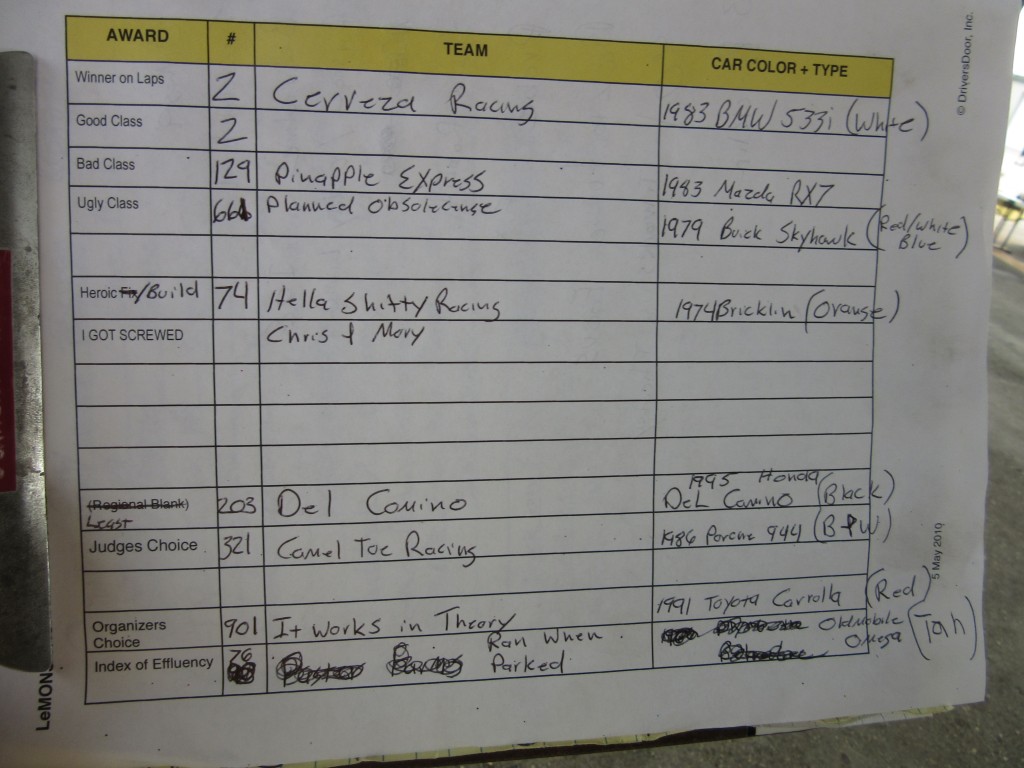 AWARD # TEAM CAR COLOR + TYPE
Winner on Laps 2 Cerveza Racing 1983 BMW 533i (White)
Good Class 2
Bad Class 129 Pinapple Express 1983 Mazda RX7
Ugly Class Planned Obsolecense 1979 Buick Skyhawk (Red/White
Blue)
Heroic Fix/Build 74 Hella Shitty Racing 1974 Bricklin (Orange)
I GOT SCREWED Chris & Mory
1995 Honda
(Regional Blank) 203 Del Comino Del Comino (Black)
Least
Judges Choice 321 Camel Toe Racing 1986 Porche 944 (B+W)
Organizers
Choice 901 It works in Theory 1991 Toyota Corrolla (Red)
Index of Effluency 76 Ran When
Parked
Oldmobile
Omega (Tan)
© DriversDoor, Inc.
5 May 2010
LeMONS